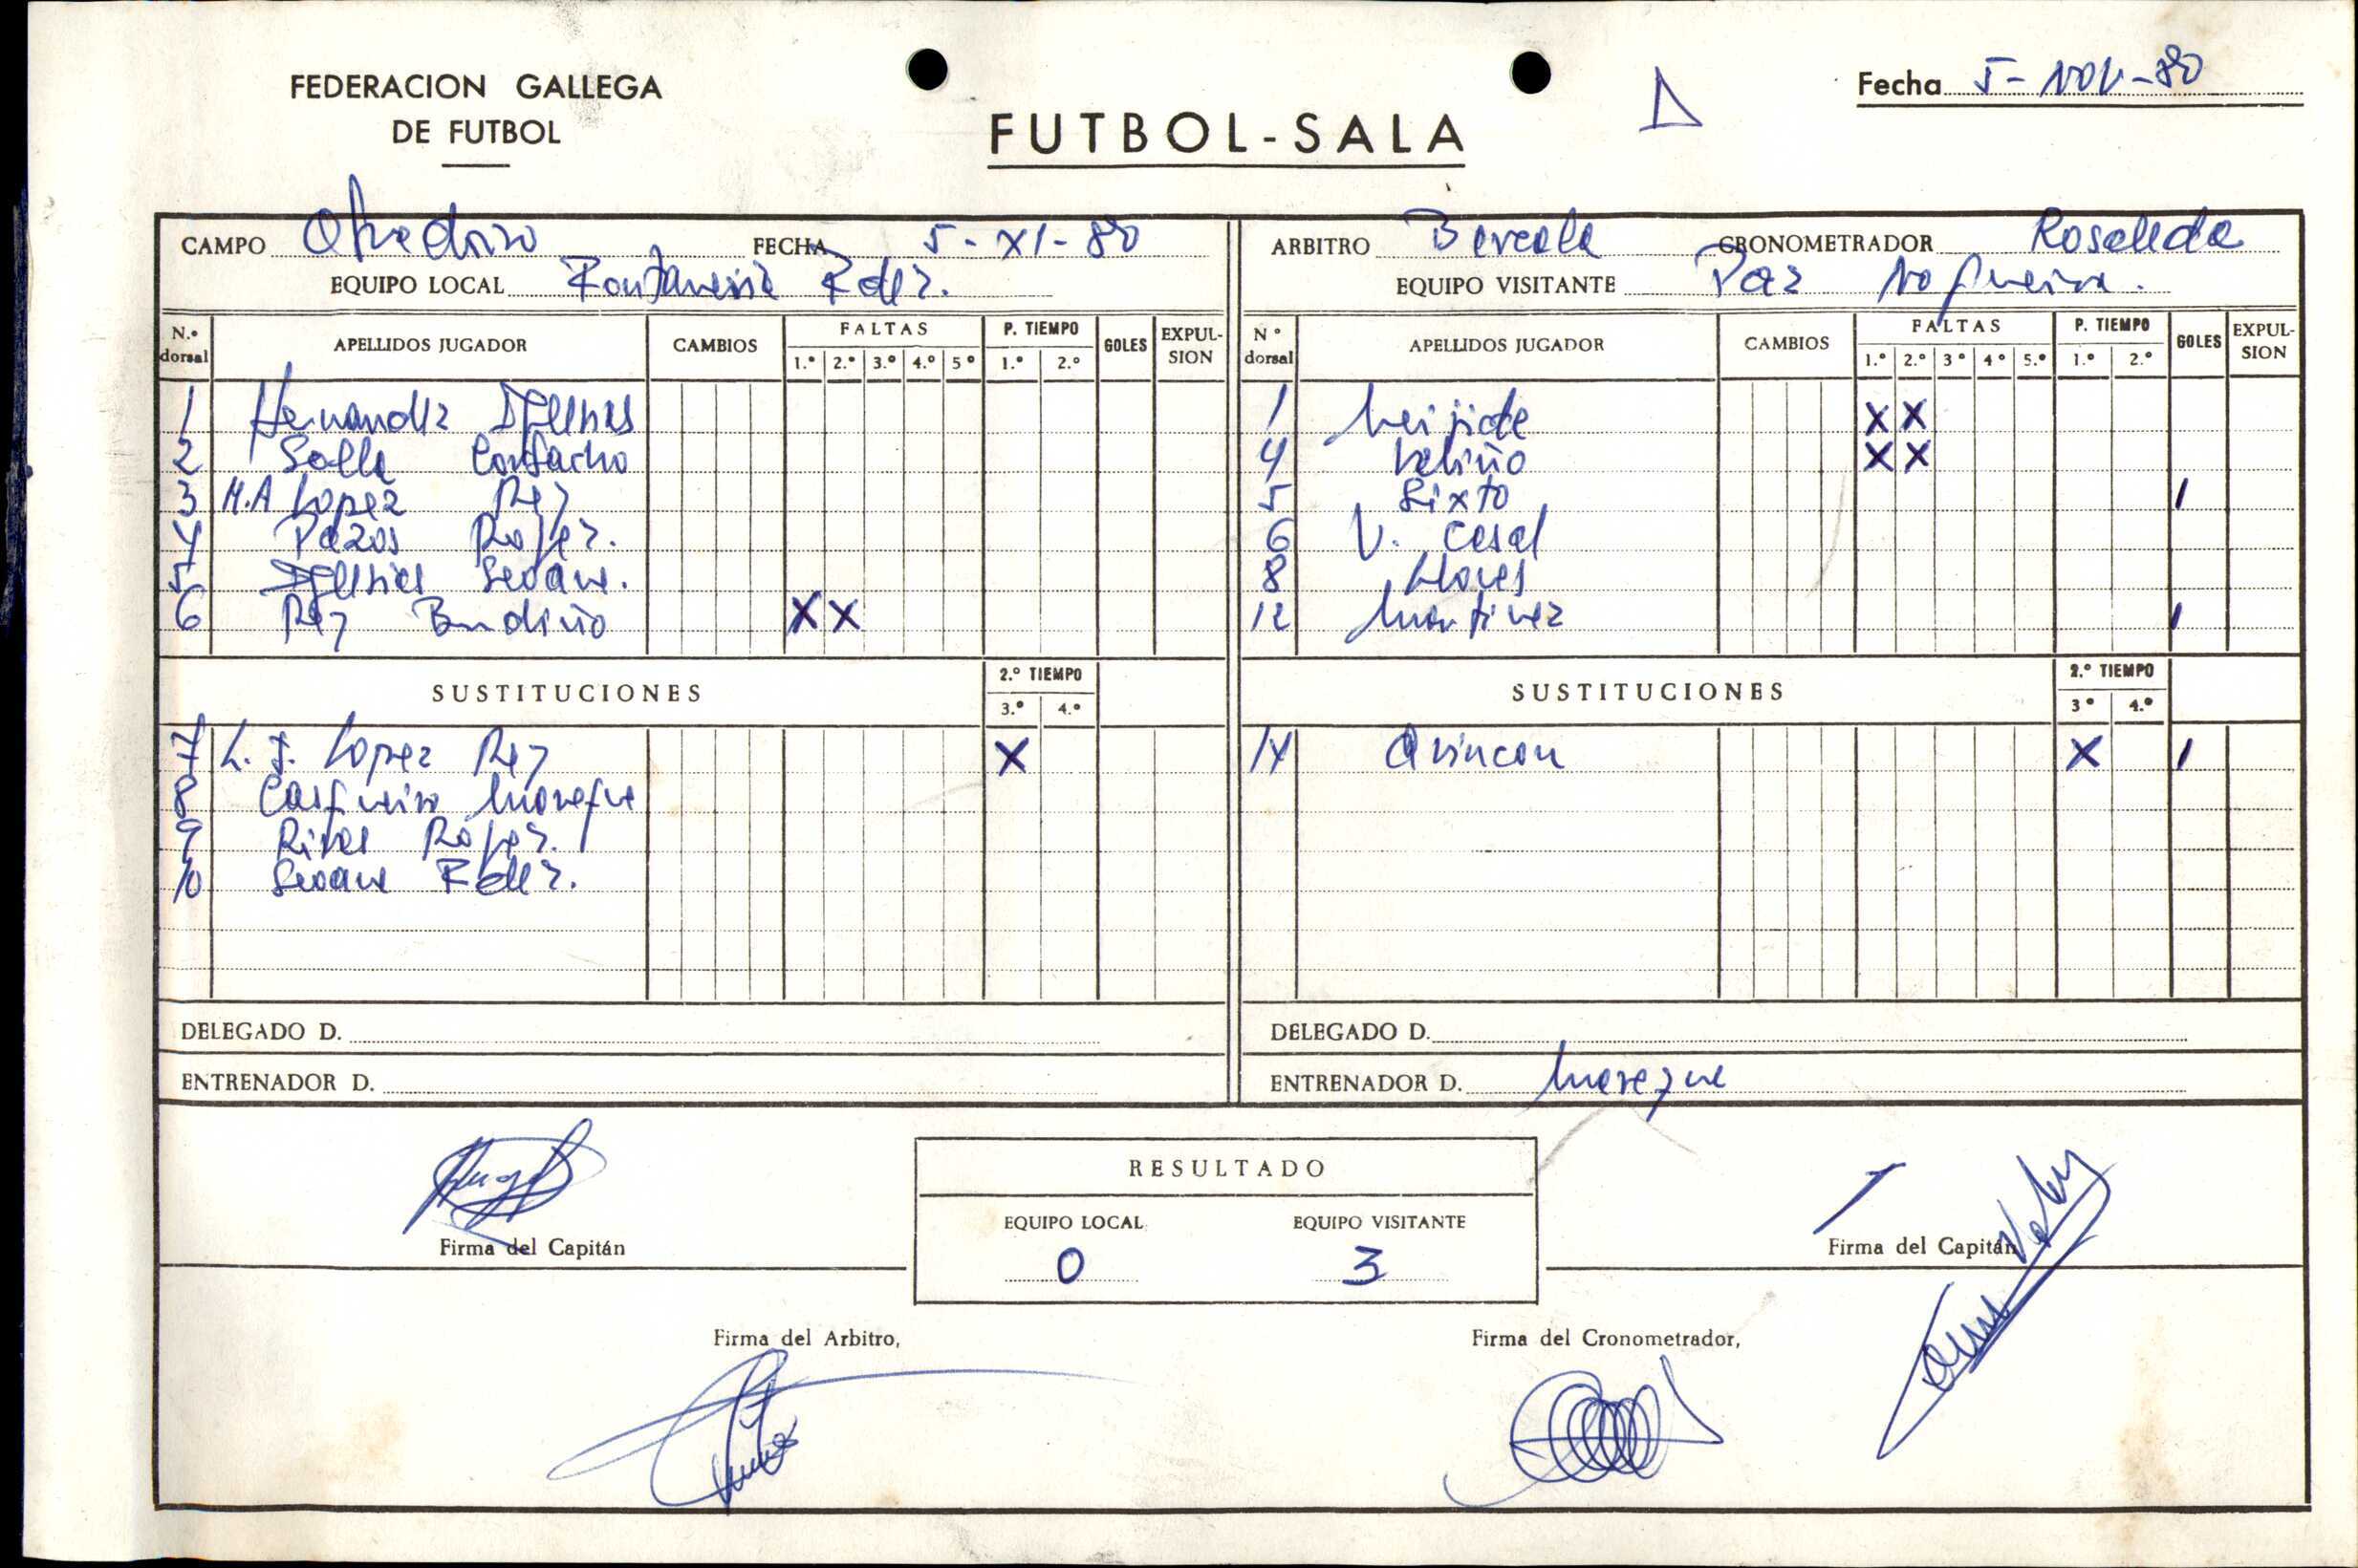 FEDERACION GALLEGA
DE FUTBOL
FUTBOL-SALA
Fecha 5-NOV-80
CAMPO Obradoiro FECHA 5-XI-80
EQUIPO LOCAL Fontaneria Fdez.
N.º dorsal APELLIDOS JUGADOR CAMBIOS FALTAS 1.º 2.º 3.º 4.º 5º P. TIEMPO 1.º 2.º GOLES EXPULSION
1 Hernandez Iglesias
2 Solla Confacho
3 M.A Lopez Rey
4 Pazos Roguez.
5 Iglesias Seoane.
6 Rey Bandiño X X
SUSTITUCIONES 2.º TIEMPO 3.º 4.º
7 L. J. Lopez Rey X
8 Casqueiro Mosquera
9 Rivas Roguez.
10 Seoane Fdez.
DELEGADO D.
ENTRENADOR D.
ARBITRO Barcala CRONOMETRADOR Rosaleda
EQUIPO VISITANTE Paz Nogueira.
Nº dorsal APELLIDOS JUGADOR CAMBIOS FALTAS 1.º 2.º 3º 4º 5.º P. TIEMPO 1.º 2.º GOLES EXPULSION
1 Meijide X X
4 Veliño X X
5 Sixto 1
6 V. Casal
8 Flores
12 Martinez 1
SUSTITUCIONES 2.º TIEMPO 3º 4.º
14 Arincon X 1
DELEGADO D.
ENTRENADOR D.
RESULTADO
EQUIPO LOCAL EQUIPO VISITANTE
0 3
Firma del Capitán
Firma del Capitán
Firma del Arbitro,
Firma del Cronometrador,